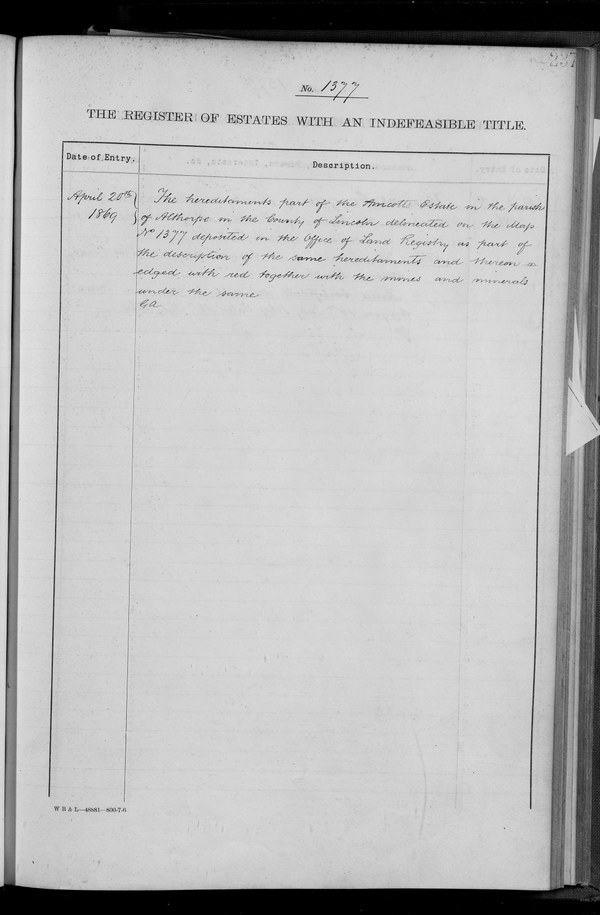 237
No. 1377
THE REGISTER OF ESTATES WITH AN INDEFEASIBLE TITLE.
Date of Entry.
Description.
April 20th
1869
The hereditaments part of the Amcotts Estate in the parish
of Althorpe in the County of Lincoln delineated on the Map
No 1377 deposited in the Office of Land Registry as part of
the description of the same hereditaments and thereon
edged with red together with the mines and minerals
under the same
GA
W B & L—48881—800-7-6